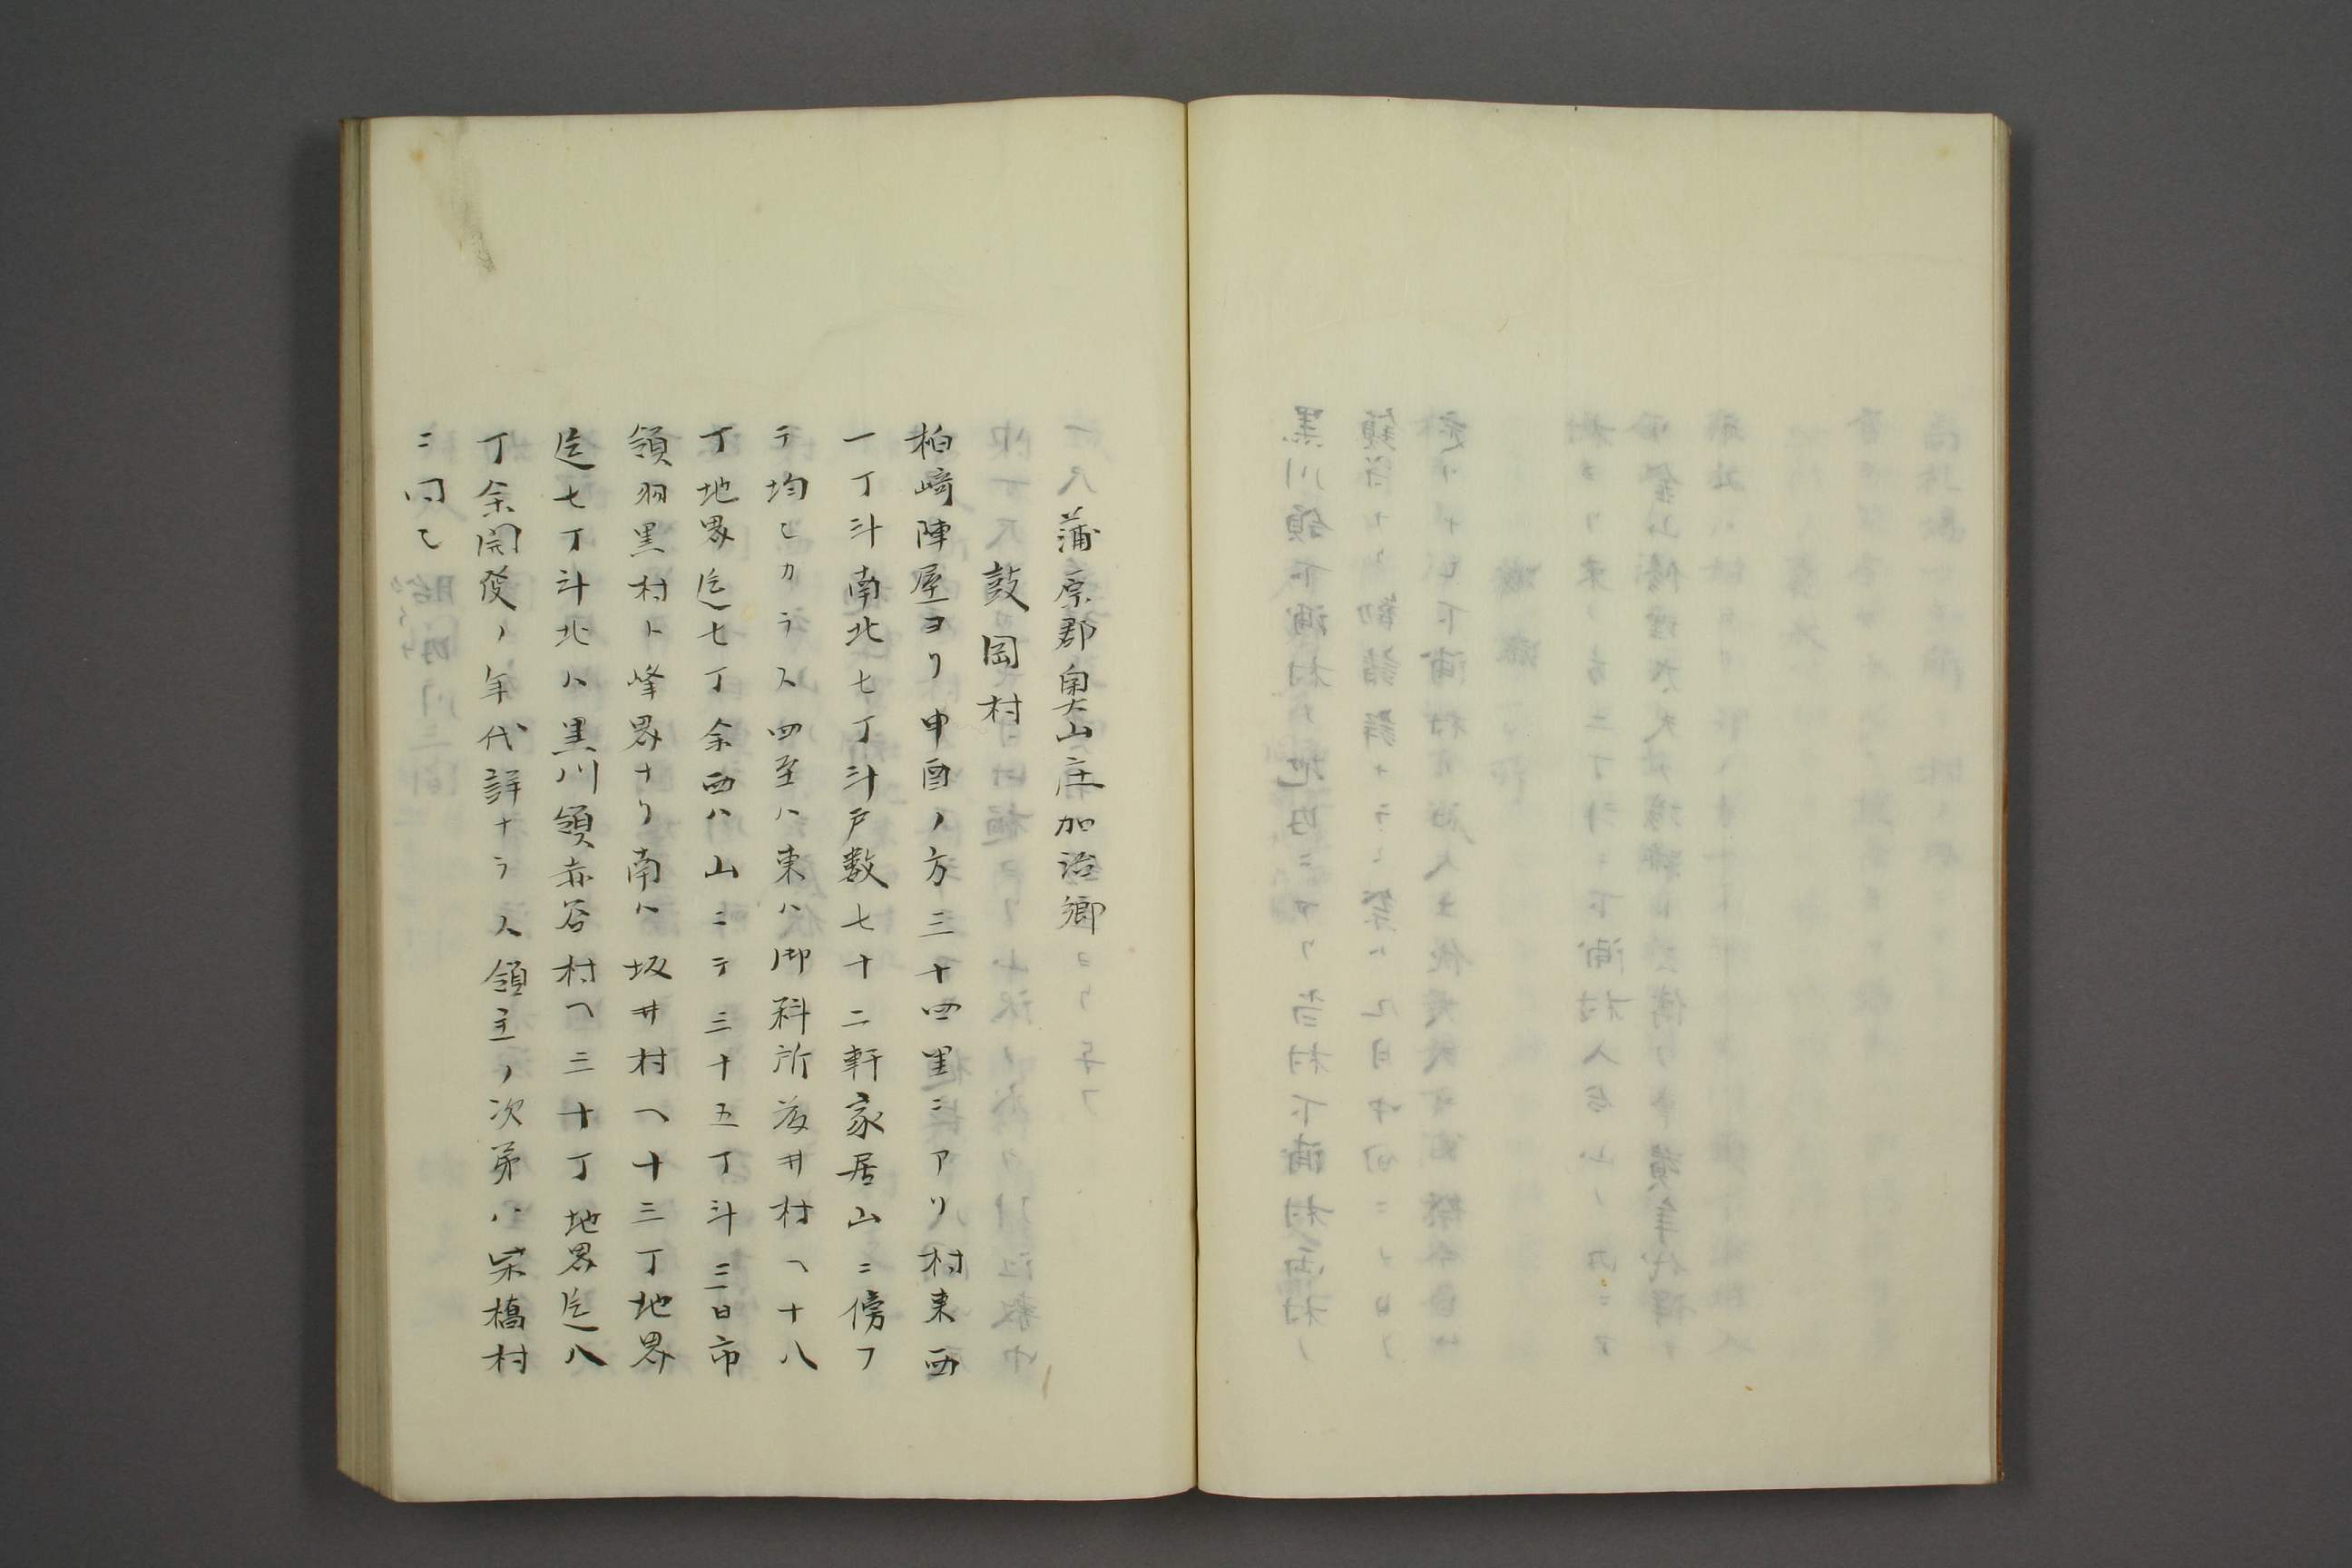 蒲原郡奥山庄加治郷
鼓岡村
柏﨑陣屋ヨリ申酉ノ方三十四里ニアリ村東西
一丁斗南北七丁斗戸数七十二軒家居山ニ傍フ
テ均シカラス四至ハ東ハ御料所荻井村ヘ十八
丁地界迄七丁余西ハ山ニテ三十五丁斗三日市
領羽黒村ト峰界ナリ南ハ坂井村ヘ十三丁地界
迄七丁斗北ハ黒川領赤谷村ヘ三十丁地界迄八
丁余開發ノ年代詳ナラス領主ノ次第ハ柴橋村
ニ同シ